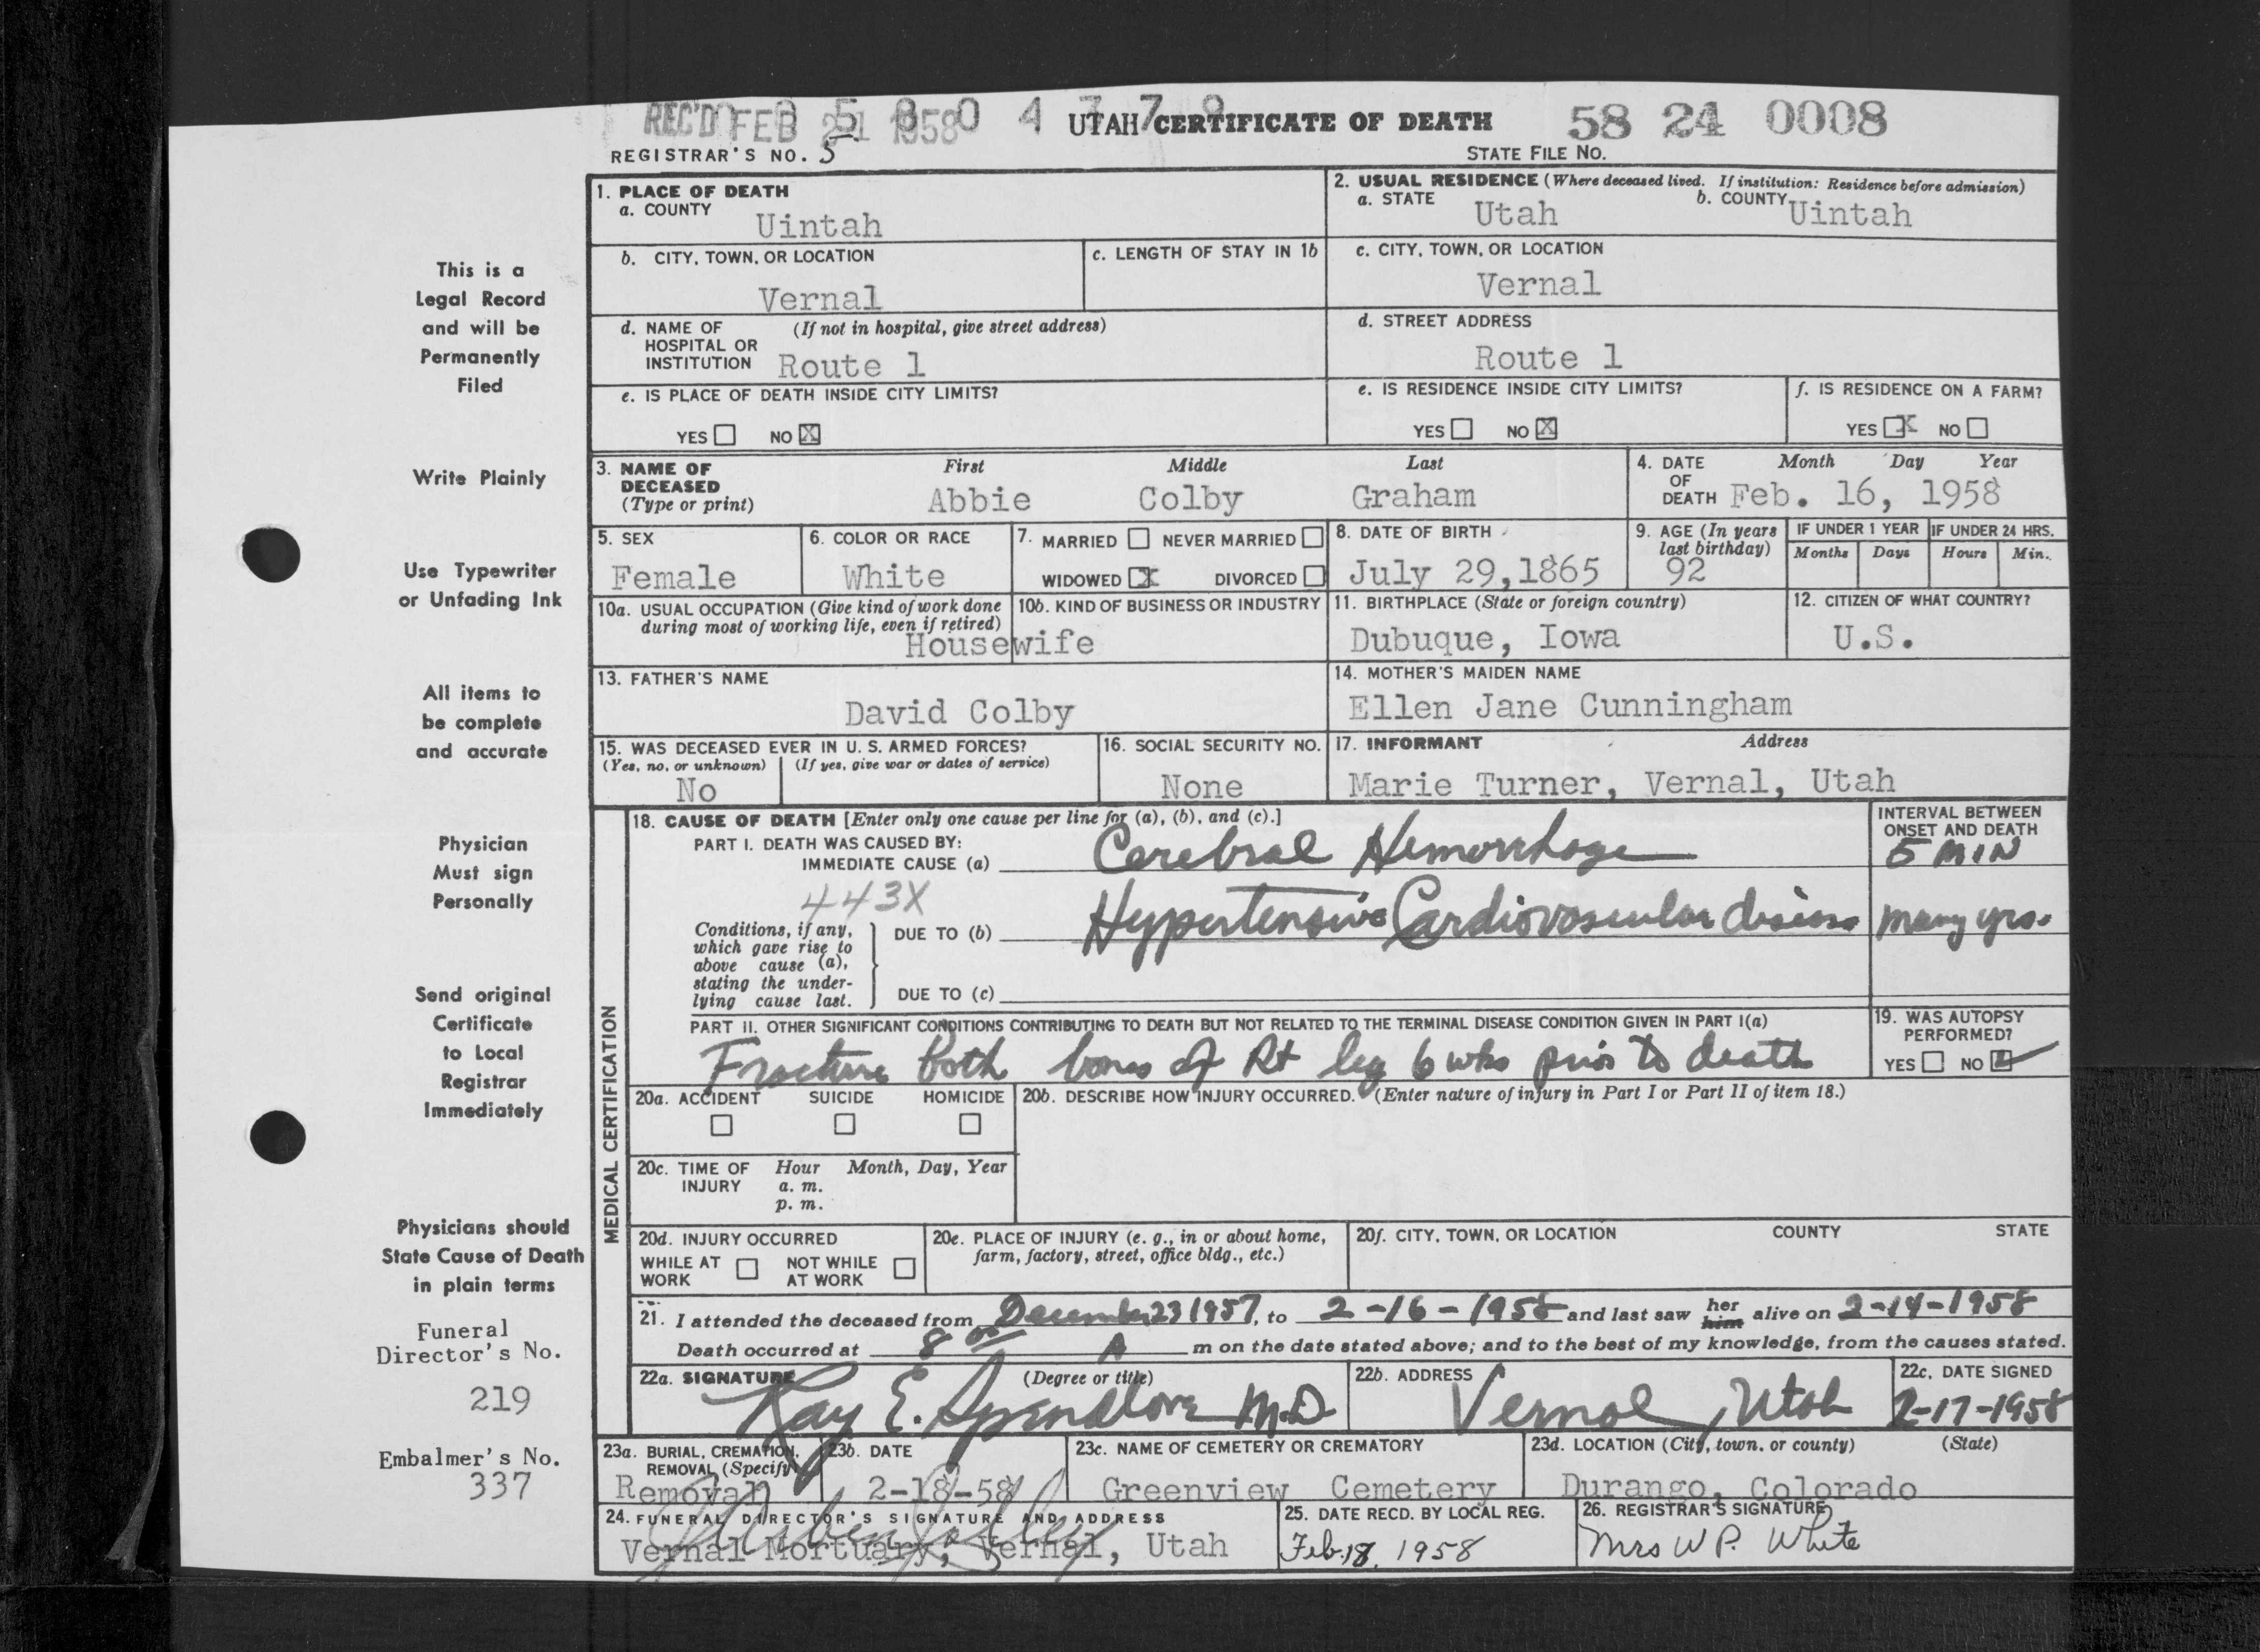 REC'D FEB 21 1958 UTAH CERTIFICATE OF DEATH 58 24 0008
REGISTRAR'S NO. 5 STATE FILE NO.
This is a
Legal Record
and will be
Permanently
Filed
Write Plainly
Use Typewriter
or Unfading Ink
All items to
be complete
and accurate
Physician
Must sign
Personally
Send original
Certificate
to Local
Registrar
Immediately
Physicians should
State Cause of Death
in plain terms
Funeral
Director's No.
219
Embalmer's No.
337
1. PLACE OF DEATH
a. COUNTY
Uintah
2. USUAL RESIDENCE (Where deceased lived. If institution: Residence before admission)
a. STATE Utah b. COUNTY Uintah
b. CITY, TOWN, OR LOCATION
Vernal
c. LENGTH OF STAY IN 1b
c. CITY, TOWN, OR LOCATION
Vernal
d. NAME OF (If not in hospital, give street address)
HOSPITAL OR
INSTITUTION Route 1
d. STREET ADDRESS
Route 1
e. IS PLACE OF DEATH INSIDE CITY LIMITS?
YES NO X
e. IS RESIDENCE INSIDE CITY LIMITS?
YES NO X
f. IS RESIDENCE ON A FARM?
YES X NO
3. NAME OF First Middle Last
DECEASED
(Type or print) Abbie Colby Graham
4. DATE Month Day Year
OF
DEATH Feb. 16, 1958
5. SEX
Female
6. COLOR OR RACE
White
7. MARRIED NEVER MARRIED
WIDOWED X DIVORCED
8. DATE OF BIRTH
July 29,1865
9. AGE (In years
last birthday)
92
IF UNDER 1 YEAR IF UNDER 24 HRS.
Months Days Hours Min.
10a. USUAL OCCUPATION (Give kind of work done
during most of working life, even if retired)
10b. KIND OF BUSINESS OR INDUSTRY
Housewife
11. BIRTHPLACE (State or foreign country)
Dubuque, Iowa
12. CITIZEN OF WHAT COUNTRY?
U.S.
13. FATHER'S NAME
David Colby
14. MOTHER'S MAIDEN NAME
Ellen Jane Cunningham
15. WAS DECEASED EVER IN U. S. ARMED FORCES?
(Yes, no, or unknown) (If yes, give war or dates of service)
No
16. SOCIAL SECURITY NO.
None
17. INFORMANT Address
Marie Turner, Vernal, Utah
MEDICAL CERTIFICATION
18. CAUSE OF DEATH [Enter only one cause per line for (a), (b), and (c).]
PART I. DEATH WAS CAUSED BY:
IMMEDIATE CAUSE (a) Cerebral Hemorrhage
INTERVAL BETWEEN
ONSET AND DEATH
5 MIN
443X
Conditions, if any,
which gave rise to
above cause (a),
stating the under-
lying cause last.
DUE TO (b) Hypertensive Cardiovascular disease many yrs.
DUE TO (c)
PART II. OTHER SIGNIFICANT CONDITIONS CONTRIBUTING TO DEATH BUT NOT RELATED TO THE TERMINAL DISEASE CONDITION GIVEN IN PART I(a)
Fracture both bones of Rt leg 6 wks prior to death
19. WAS AUTOPSY
PERFORMED?
YES NO
20a. ACCIDENT SUICIDE HOMICIDE
20b. DESCRIBE HOW INJURY OCCURRED. (Enter nature of injury in Part I or Part II of item 18.)
20c. TIME OF Hour Month, Day, Year
INJURY a. m.
p. m.
20d. INJURY OCCURRED
WHILE AT NOT WHILE
WORK AT WORK
20e. PLACE OF INJURY (e. g., in or about home,
farm, factory, street, office bldg., etc.)
20f. CITY, TOWN, OR LOCATION COUNTY STATE
21. I attended the deceased from December 23 1957, to 2-16-1958 and last saw her him alive on 2-14-1958
Death occurred at 8 00 A m on the date stated above; and to the best of my knowledge, from the causes stated.
22a. SIGNATURE (Degree or title)
Ray E. Spendlove M.D.
22b. ADDRESS
Vernal, Utah
22c. DATE SIGNED
2-17-1958
23a. BURIAL, CREMATION,
REMOVAL (Specify)
Removal
23b. DATE
2-18-58
23c. NAME OF CEMETERY OR CREMATORY
Greenview Cemetery
23d. LOCATION (City, town, or county) (State)
Durango, Colorado
24. FUNERAL DIRECTOR'S SIGNATURE AND ADDRESS
Vernal Mortuary, Vernal, Utah
25. DATE RECD. BY LOCAL REG.
Feb. 18, 1958
26. REGISTRAR'S SIGNATURE
Mrs W P. White